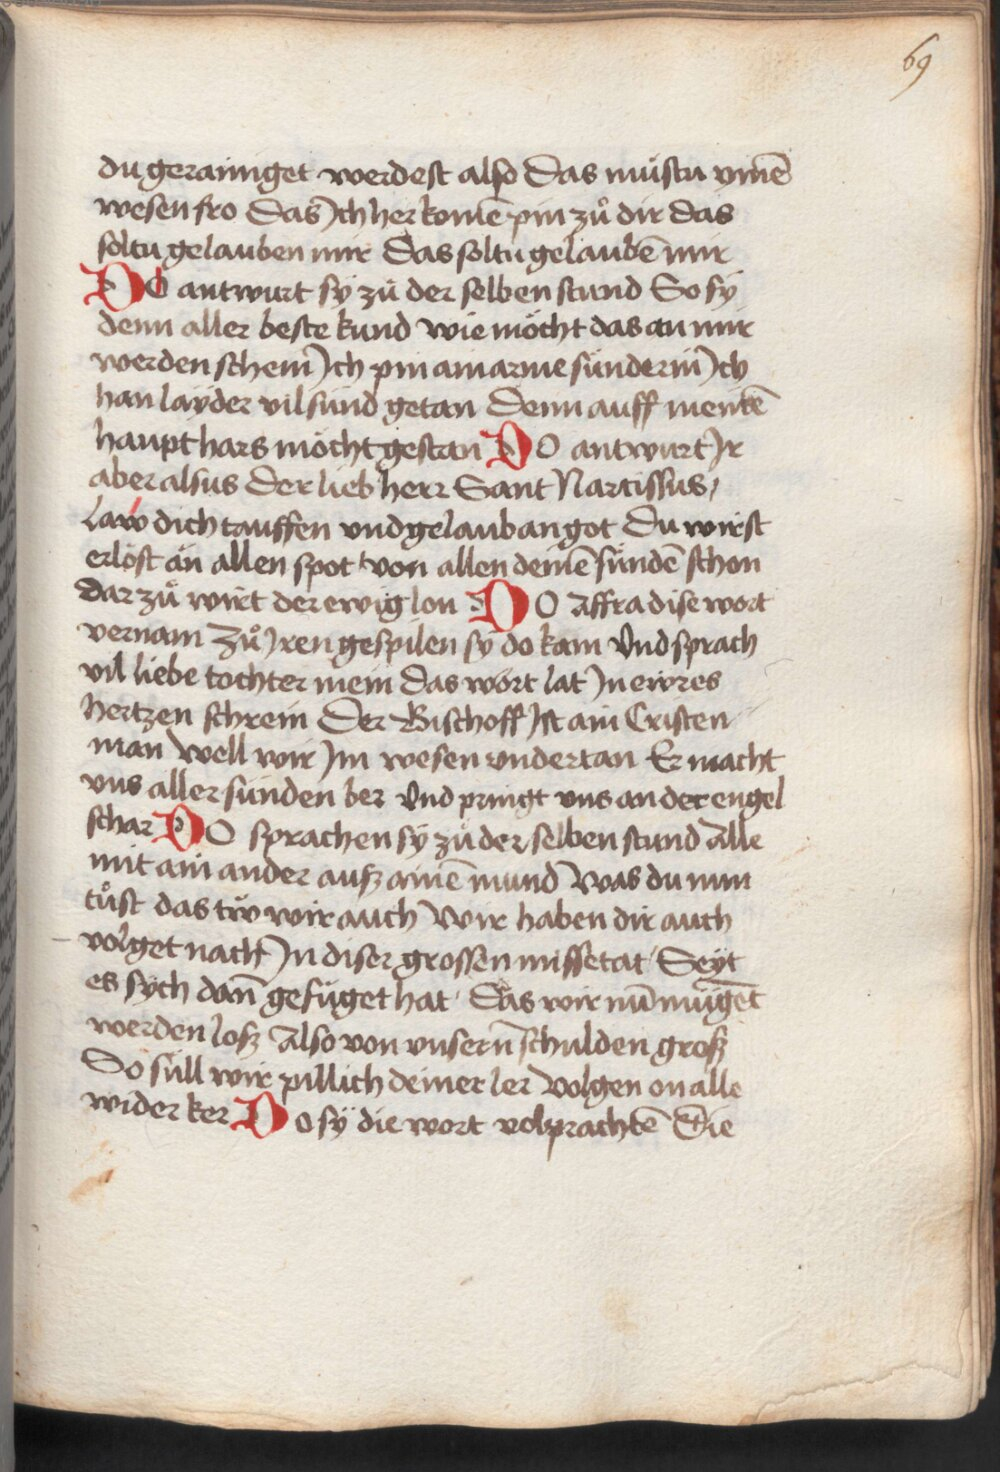 69
du gerainiget werdest also Das muͤstu ymē
wesen fro Das Ich her komē pin zuͦ dir das
soltu gelauben mir Das soltu gelaubē mir
DO antwurt sy zuͦ der selben stund So sy
denn aller beste kund wie möcht das an mir
werden schein Ich pin ain arme sünderin Ich
han layder vil sünd getan Denn auff meinē
haupt hars möcht gestan DO antwurt Ir
aber alsus Der lieb herr Sant Narcissus,
law dich tauffen vnd gelaub an got Du wirst
erlöst än allen spot von allen deinē sündē schon
dar zuͦ wirt der ewig lon DO Affra dise wort
vernam Zuͦ Iren gespilen sy do kam Vnd sprach
vil liebe tochter mein Das wort lat In ewres
hertzen schrein Der Bischoff Ist ain Cristen
man Well wir Im wesen vndertan Er macht
vns aller sünden ber Vnd pringt vns an der engel
schar DO sprachen sy zuͦ der selben stund Alle
mit ain ander ausz ainē mund Was du nun
tuͦst das tuͦ wir auch Wir haben dir auch
volget nach In diser grossen missetat Seyt
es sych dan̄ gefüget hat Das wir nū mügēt
werden losz Also von vnsern̄ schulden grosz
So süll wir pillich deiner ler Volgen on alle
wider ker DO sy die wort volprachtē Die